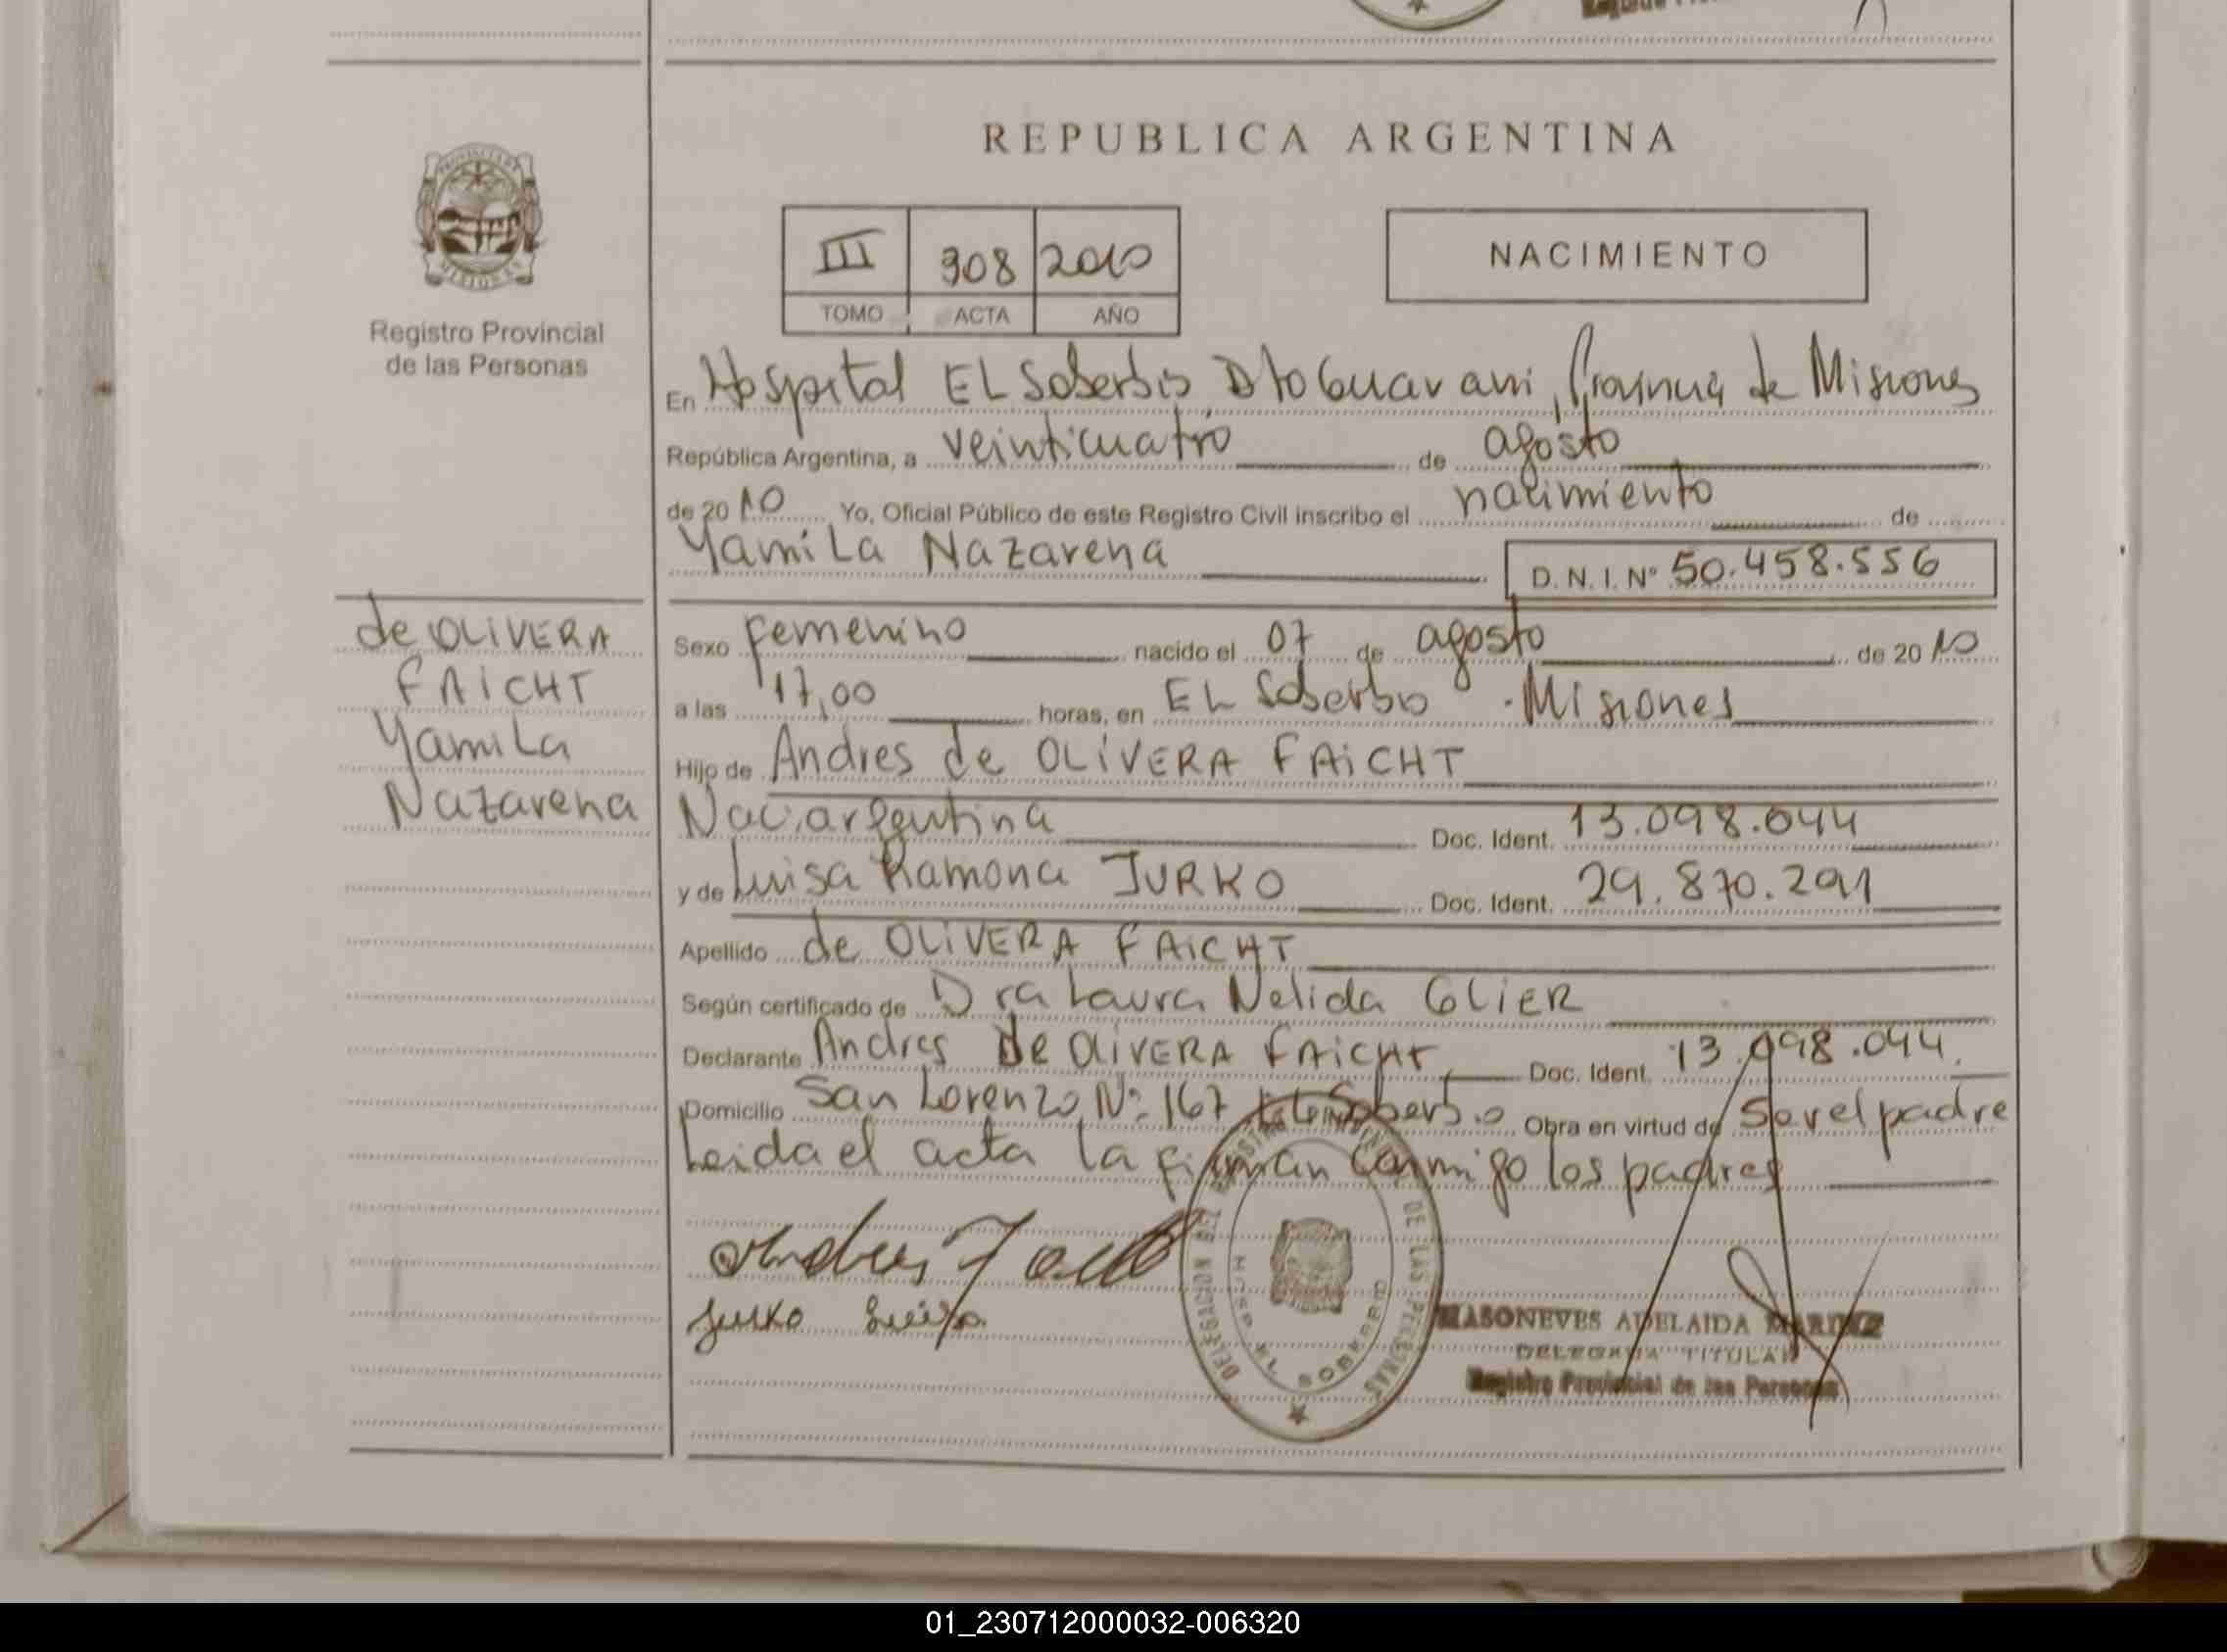 REPUBLICA ARGENTINA
PROVINCIA DE
MISIONES
Registro Provincial
de las Personas
III 308 2010
TOMO ACTA AÑO
NACIMIENTO
En Hospital EL Soberbio, Dto Guarani, Provincia de Misiones
República Argentina, a veinticuatro de agosto
de 2010 Yo, Oficial Público de este Registro Civil inscribo el nacimiento de
Yamila Nazarena D.N.I. Nº 50.458.556
de OLIVERA
FAICHT
Yamila
Nazarena
Sexo femenino nacido el 07 de agosto de 2010
a las 17,00 horas, en EL Soberbio - Misiones
Hijo de Andres de OLIVERA FAICHT
Nac. argentina Doc. Ident. 13.098.044
y de Luisa Ramona JURKO Doc. Ident. 29.870.291
Apellido de OLIVERA FAICHT
Según certificado de Dra Laura Nelida GLIER
Declarante Andres de OLIVERA FAICHT Doc. Ident. 13.098.044
Domicilio San Lorenzo Nº 167 EL Soberbio Obra en virtud de Ser el padre
Leida el acta la firman conmigo los padres
Jurko Luisa
DE LAS PERSONAS
EL SOBERBIO
MASONEVES ADELAIDA
DELEGADA TITULAR
Registro Provincial de las Personas
01_230712000032-006320